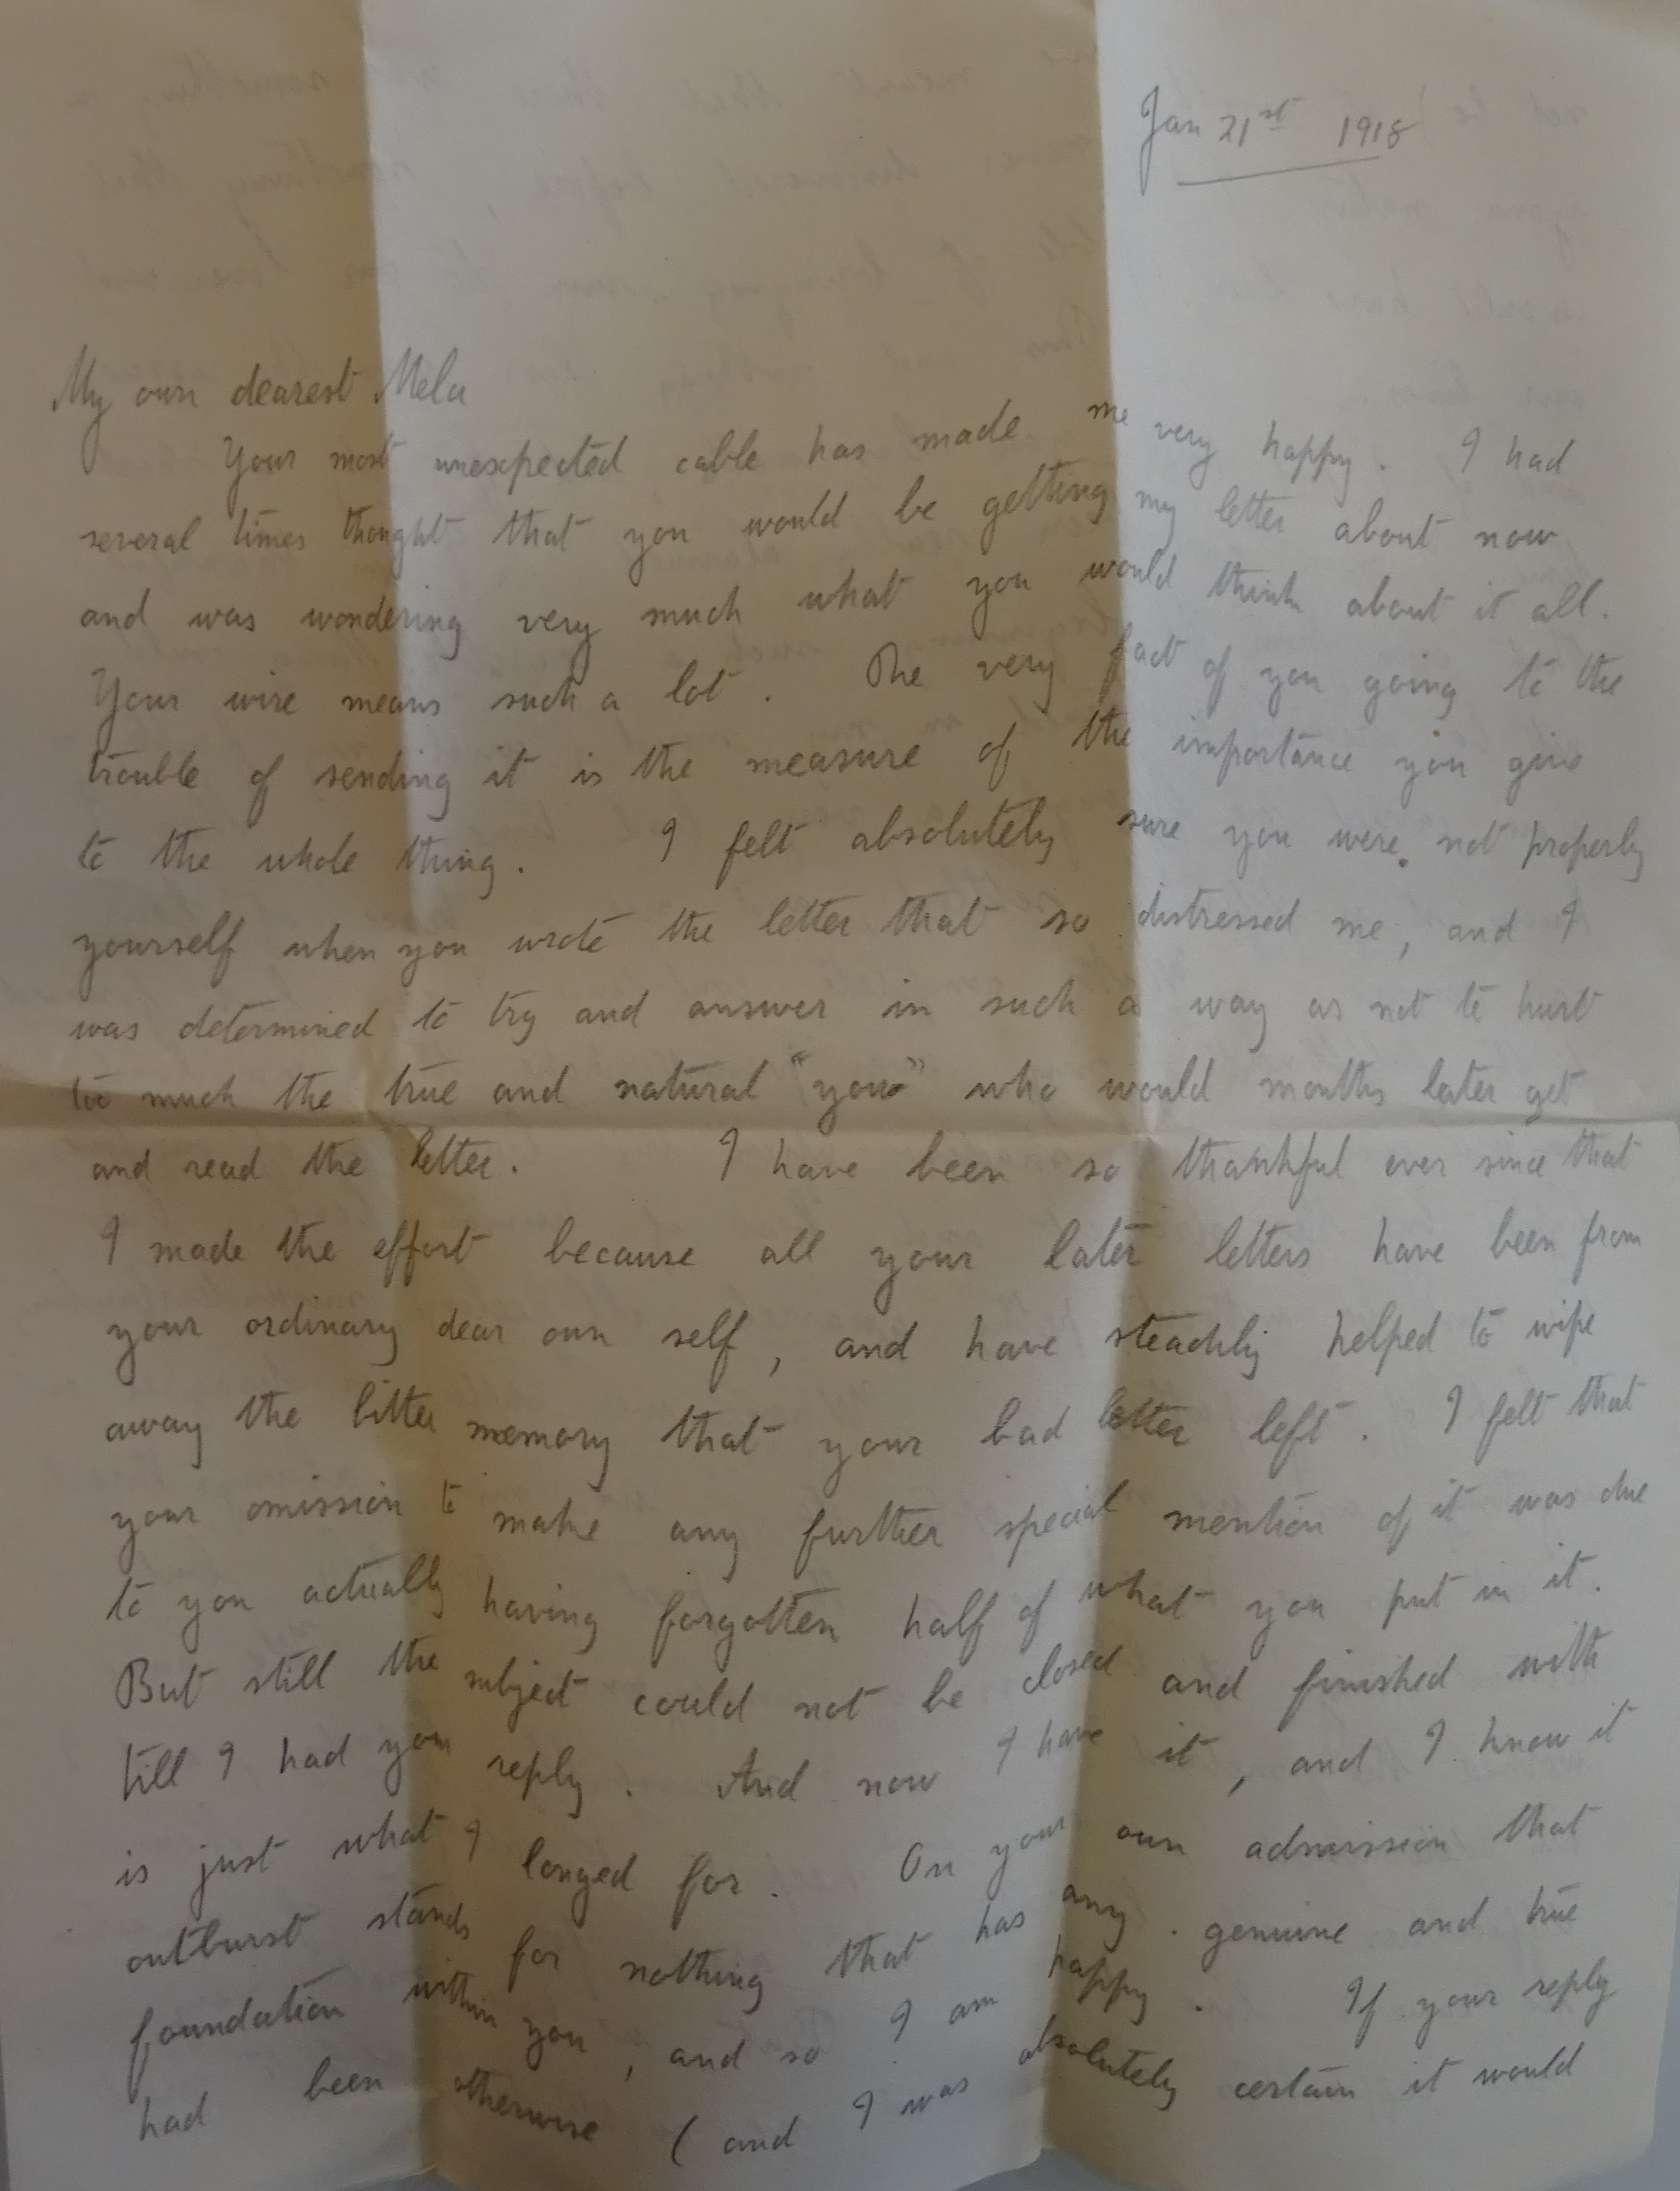 Jan 21st 1918
My own dearest Mela
Your most unexpected cable has made me very happy. I had
several times thought that you would be getting my letter about now
and was wondering very much what you would think about it all.
Your wire means such a lot. The very fact of you going to the
trouble of sending it is the measure of the importance you give
to the whole thing. I felt absolutely sure you were not properly
yourself when you wrote the letter that so distressed me, and I
was determined to try and answer in such a way as not to hurt
too much the true and natural "you" who would months later get
and read the letter. I have been so thankful ever since that
I made the effort because all your later letters have been from
your ordinary dear own self, and have steadily helped to wipe
away the bitter memory that your bad letter left. I felt that
your omission to make any further special mention of it was due
to you actually having forgotten half of what you put in it.
But still the subject could not be closed and finished with
till I had your reply. And now I have it, and I know it
is just what I longed for. On your own admission that
outburst stands for nothing that has any genuine and true
foundation within you, and so I am happy. If your reply
had been otherwise (and I was absolutely certain it would